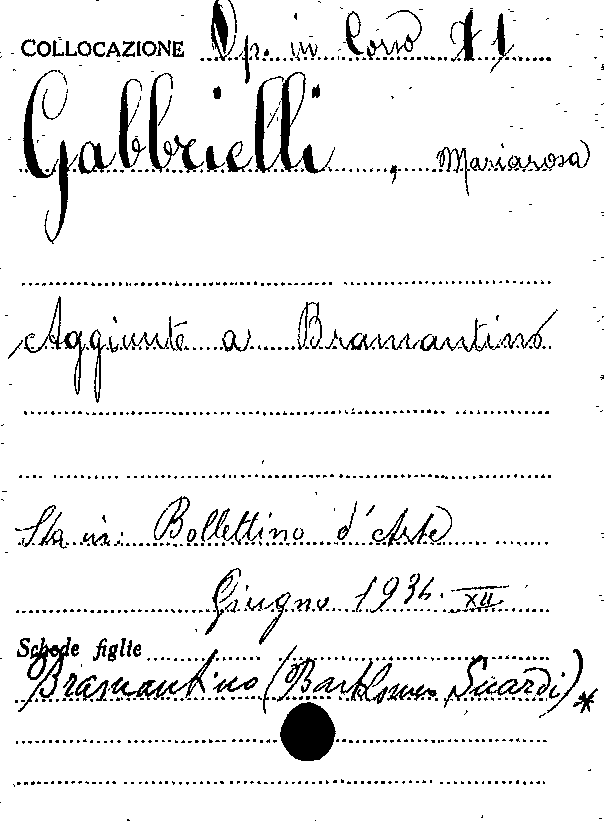 COLLOCAZIONE Op. in Corso 71
Gabbrielli, Mariarosa
Aggiunte a Bramantino
Sta in: Bollettino d'Arte
Giugno 1934. XII
Schede figlie
Bramantino (Bartolomeo Suardi) *